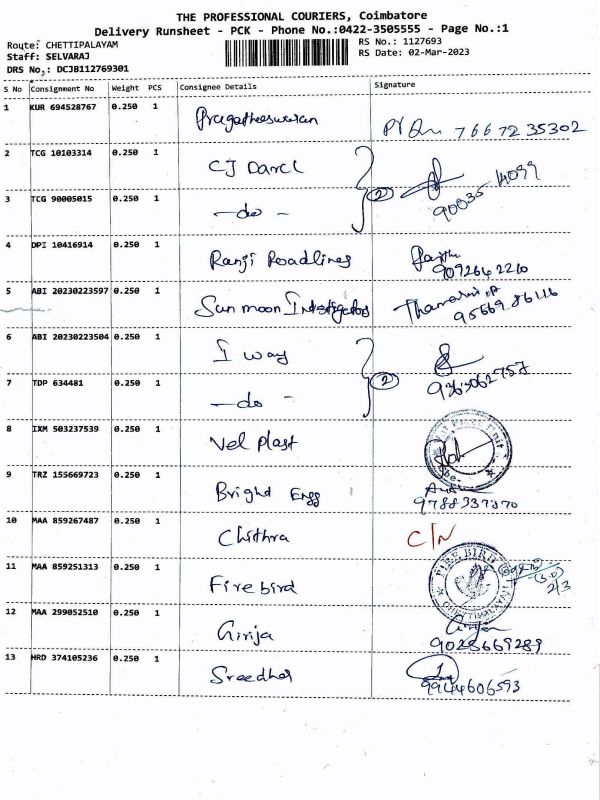 THE PROFESSIONAL COURIERS, Coimbatore
Delivery Runsheet - PCK - Phone No.:0422-3505555 - Page No.:1
Route: CHETTIPALAYAM RS No.: 1127693
Staff: SELVARAJ RS Date: 02-Mar-2023
DRS No,: DCJB112769301
S No Consignment No Weight PCS Consignee Details Signature
1 KUR 694528767 0.250 1 Pragatheeswaran 76672 35302
2 TCG 10103314 0.250 1 CJ Darcl
3 TCG 90005015 0.250 1 —do — 2 90035 14099
4 DPI 10416914 0.250 1 Ranji Roadlines 9092642210
5 ABI 20230223597 0.250 1 Sun moon Investigators 95669 86116
6 ABI 20230223504 0.250 1 I way
7 TDP 634481 0.250 1 —do — 2 9363062757
8 IXM 503237539 0.250 1 Vel Plast
9 TRZ 155669723 0.250 1 Bright Engg 9788337870
10 MAA 859267487 0.250 1 Chithra C/N
11 MAA 859251313 0.250 1 Firebird FIRE BIRD CHETTIPALAYAM 2/3
12 MAA 299052510 0.250 1 Girija Girija 9028669289
13 HRD 374105236 0.250 1 Sreedher 9944606593